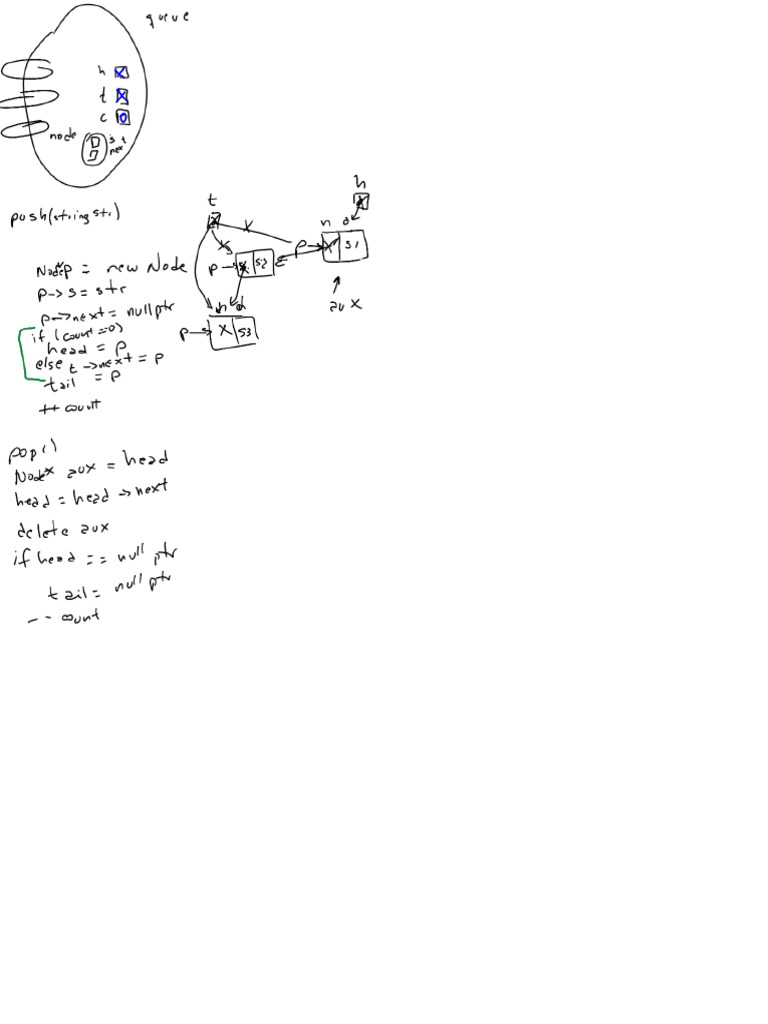 queue
h
t
c 0
node
next
push(string str)
Node* p = new Node
p->s = str
p->next = nullptr
if (count = 0)
head = p
else t->next = p
tail = p
++ count
t
h
x
x
n d
p x s1
p x s2
aux
n d
p x s3
pop()
Node* aux = head
head = head -> next
delete aux
if head == nullptr
tail = nullptr
-- count